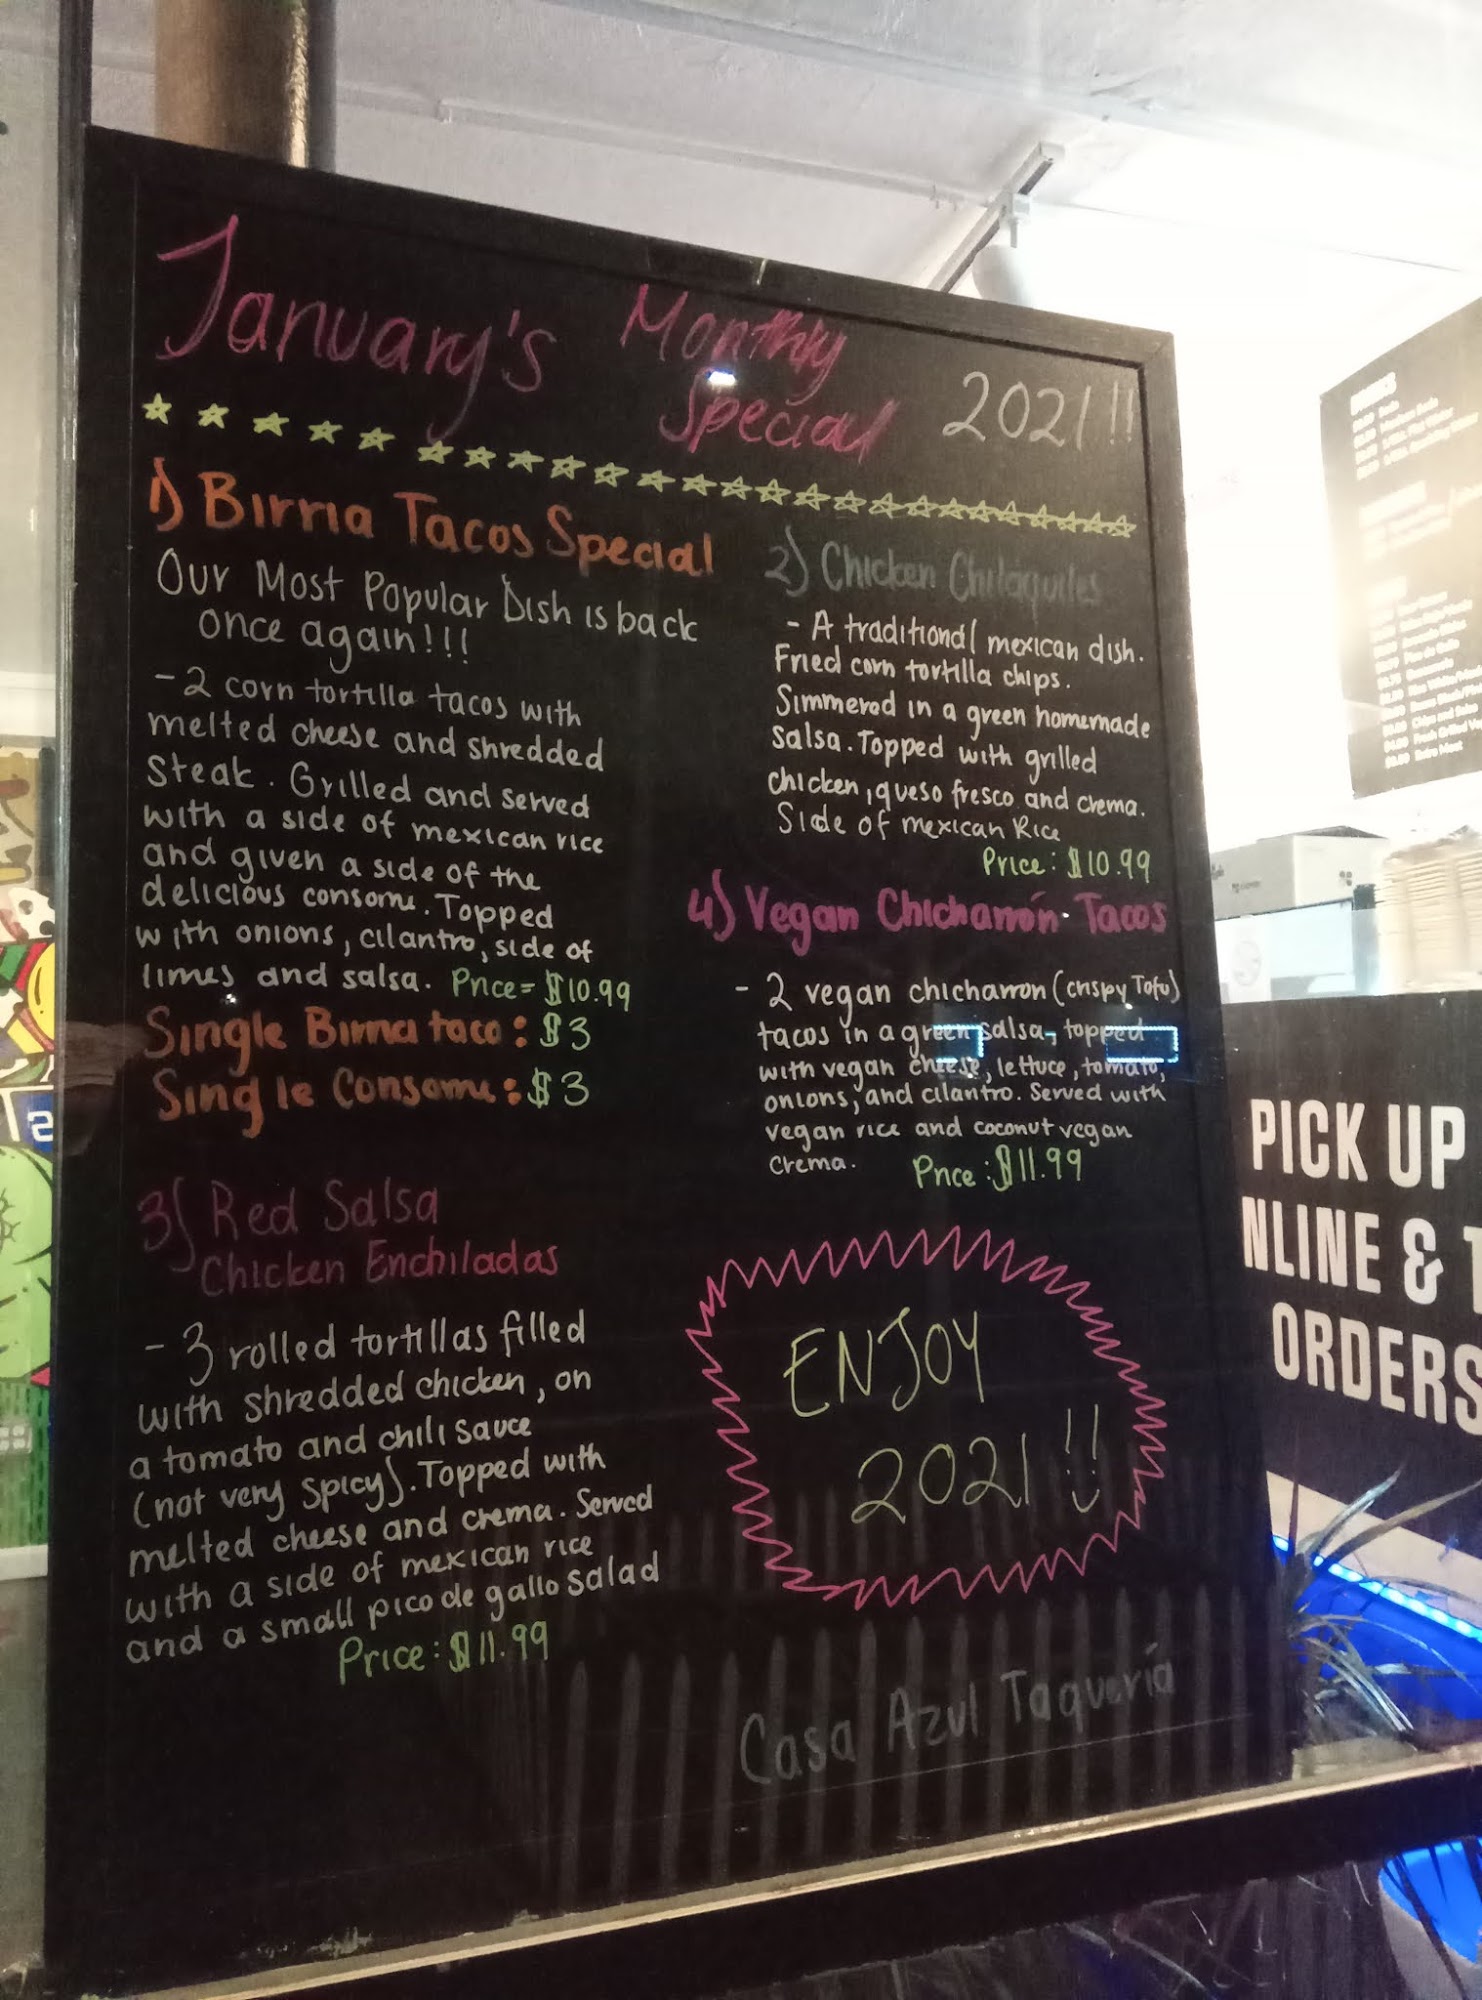 January's Monthly
Special 2021!!
1) Birria Tacos Special
Our Most Popular Dish is back
once again!!!
- 2 corn tortilla tacos with
melted cheese and shredded
steak. Grilled and served
with a side of mexican rice
and given a side of the
delicious consome. Topped
with onions, cilantro, side of
limes and salsa. Price= $10.99
Single Birria taco: $3
Single Consome: $3
2) Chicken Chilaquiles
- A traditional mexican dish.
Fried corn tortilla chips.
Simmered in a green homemade
salsa. Topped with grilled
chicken, queso fresco and crema.
Side of mexican Rice
Price: $10.99
3) Red Salsa
Chicken Enchiladas
- 3 rolled tortillas filled
with shredded chicken, on
a tomato and chili sauce
(not very spicy). Topped with
melted cheese and crema. Served
with a side of mexican rice
and a small pico de gallo salad
Price: $11.99
4) Vegan Chicharrón Tacos
- 2 vegan chicharron (crispy Tofu)
tacos in a green salsa, topped
with vegan cheese, lettuce, tomato,
onions, and cilantro. Served with
vegan rice and coconut vegan
crema. Price: $11.99
ENJOY
2021!!
Casa Azul Taquería
PICK UP
NLINE & T
ORDERS